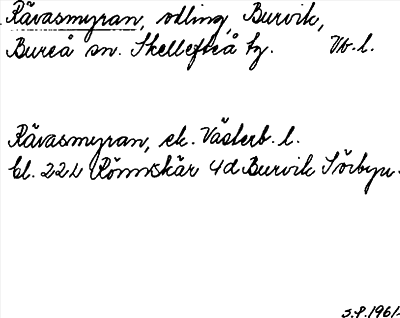 Rävasmyran, odling, Burvik,
Bureå sn. Skellefteå tg. Vb. l.
Rävasmyran, ek. Västerb. l.
bl. 22L Rönnskär 4d Burvik Sörbyn.
S.P. 1961.